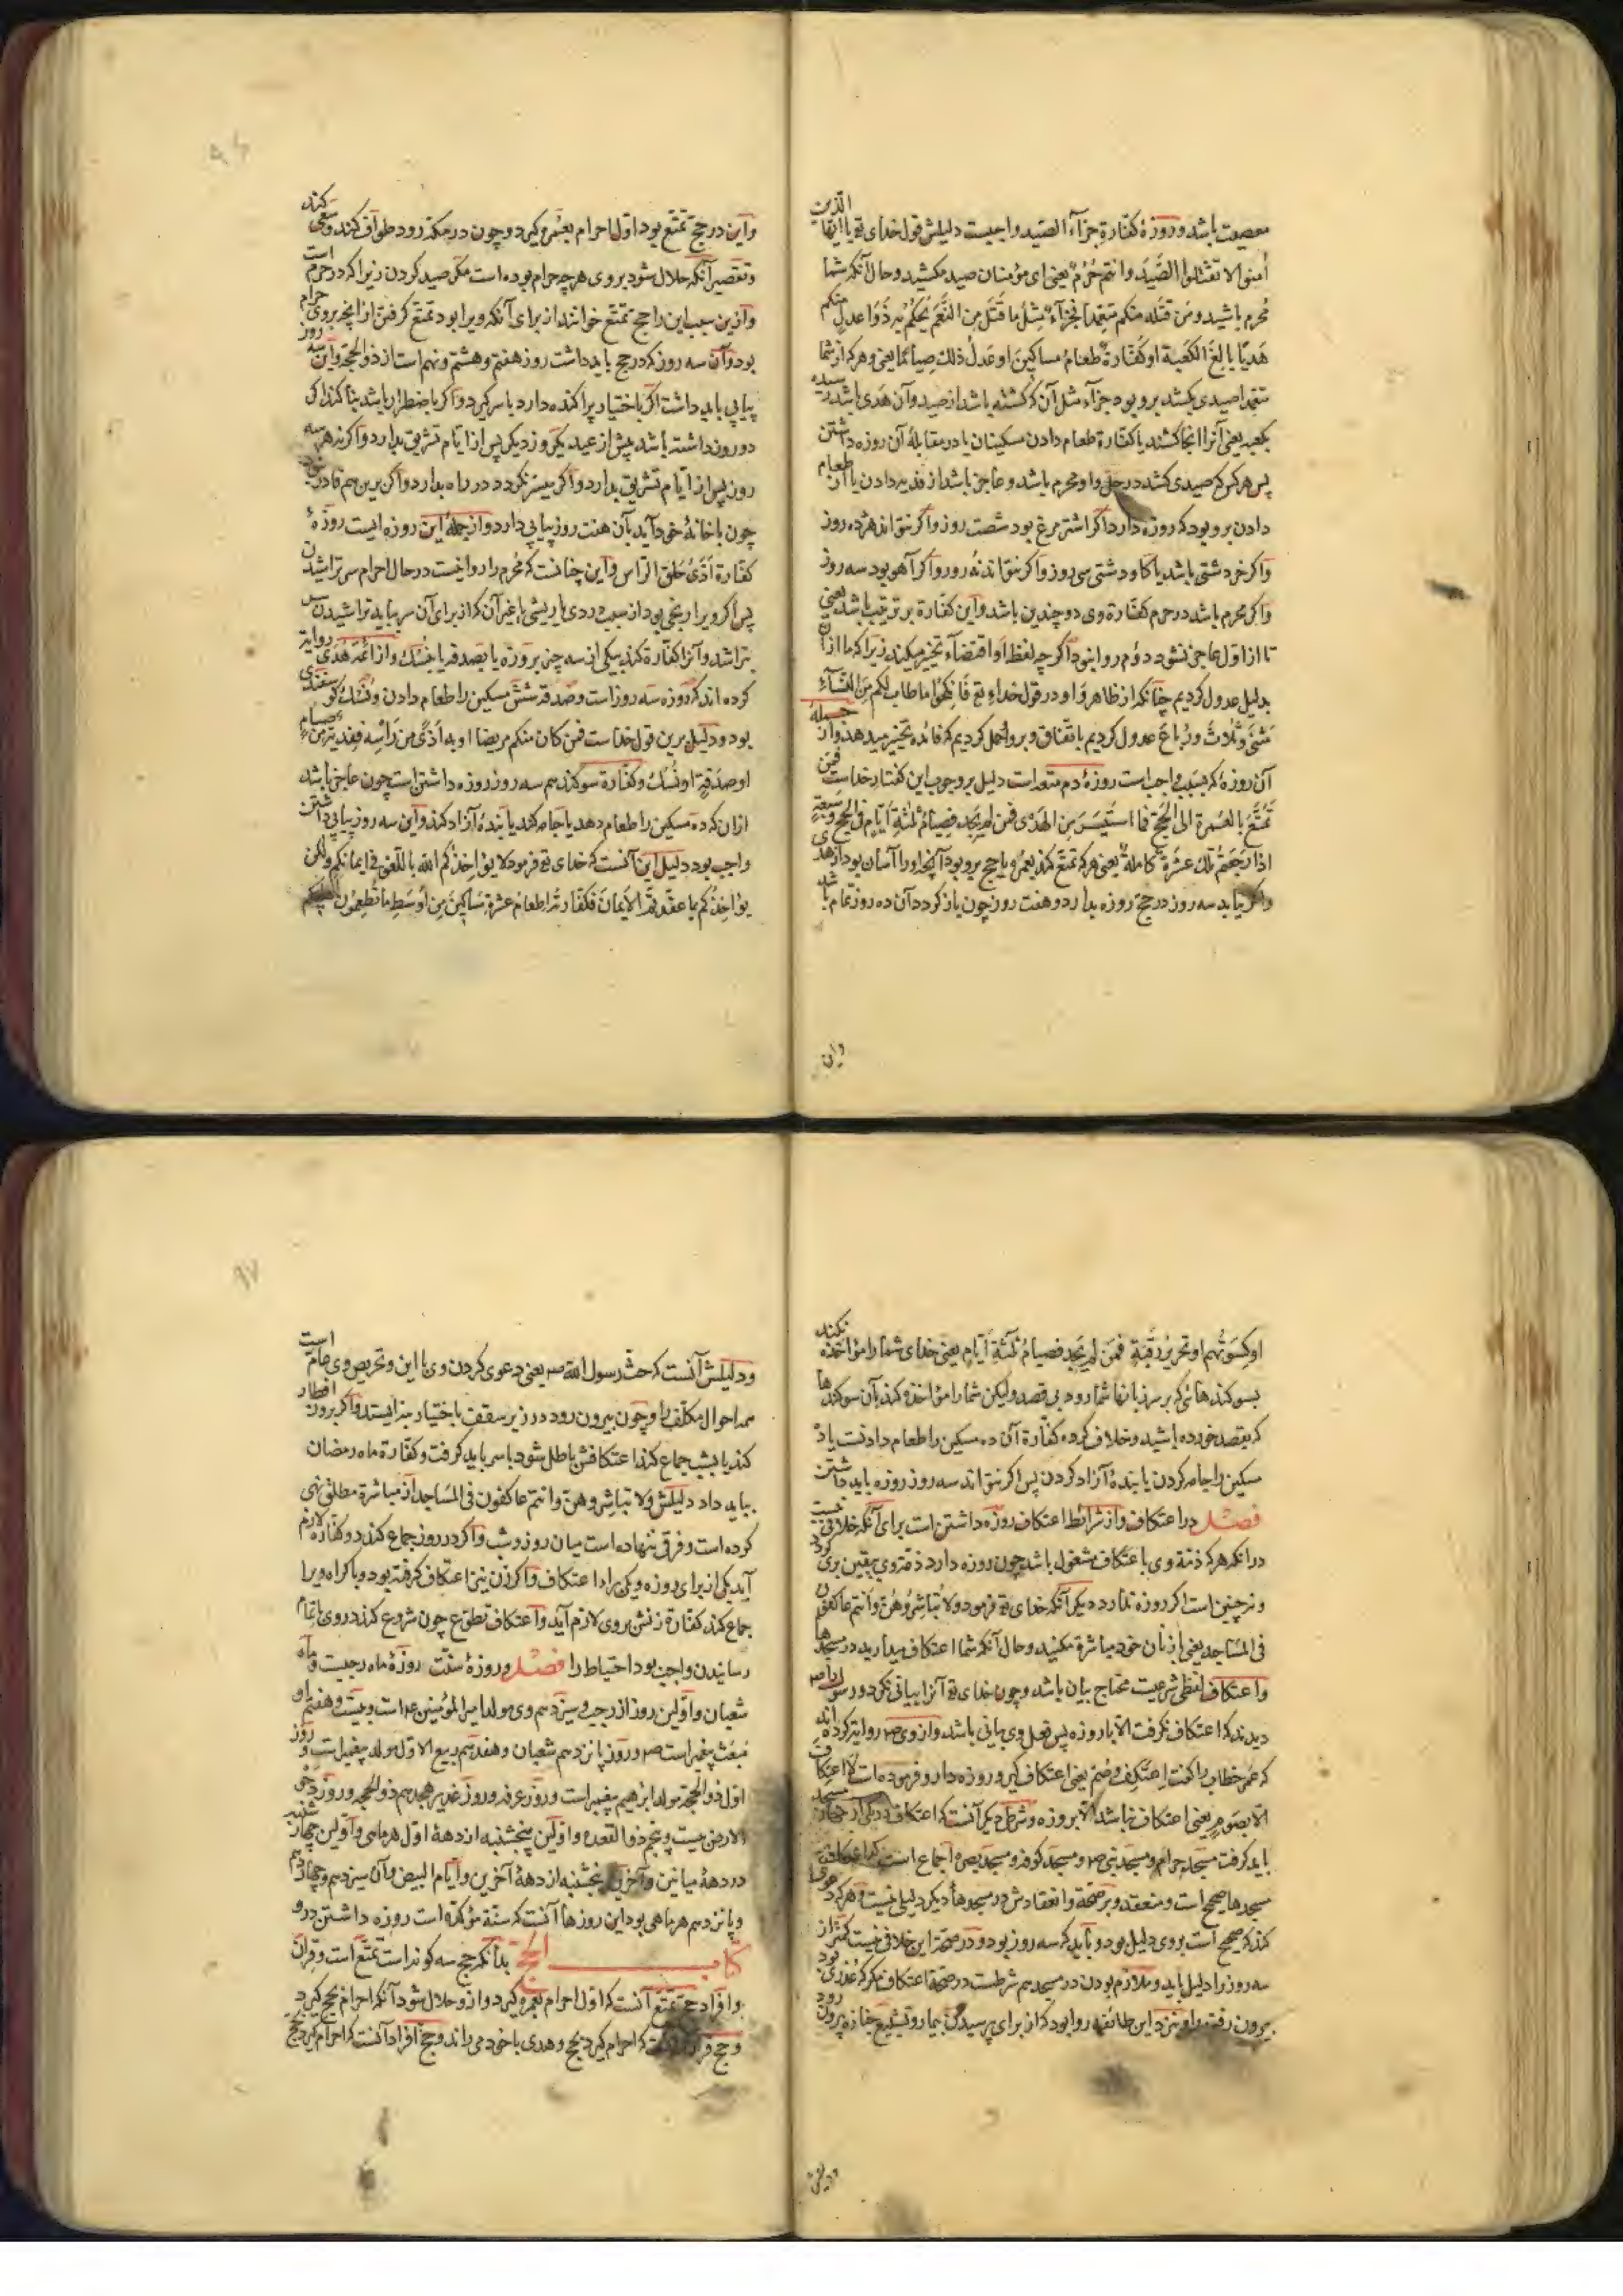 معصیت باشد و روزهٔ کفّارة جزآء الصّید واجبست دلیلش قول خدای تع یا ایّها الذین
اٰمنوا لا تقتلوا الصَّیدَ وانتم حُرُمٌ یعنی ای مؤمنان صید مکشید و حال آنکه شما
مُحرم باشید ومَن قتله منکم متعمّداً فجزآءٌ مِثلُ ما قَتَلَ مِنَ النَّعَمِ یَحکُمُ بِه ذَوَا عدلٍ منکم
هَدیًا بالِغَ الکَعبة او کفّارةٌ طعامُ مساکینَ او عَدلُ ذلك صیاماً یعنی و هرکه از شما
متعمّدا صیدی بکشد برو بود جزآء مثل آن که کشته باشد از صید وآن هَدی باشد رسیده
بکعبه یعنی آنرا آنجا کشند یا کفّارة طعام دادن مسکینان یا در مقابلهٔ آن روزه داشتن
پس هرکس که صیدی کشد در حل و او محرم باشد و عاجز باشد از فدیه دادن یا از طعام
دادن برو بود که روزه دارد اگر اشتر مرغ بود شصت روز واگر نتواند هژده روز
واکر خر دشتی باشد یا کاو دشتی سی روز واکر نتواند نُه روز واکر آهو بود سه روز
واکر محرم باشد در حرم کفّارة وی دو چندین باشد واین کفّارة بر ترتیب باشد یعنی
تا از اوّل عاجز نشود دوّم روا نبود اگر چه لفظ او اقتضآء تخییر میکند زیرا که ما ازآن
بدلیل عدول کردیم چنانکه از ظاهر واو در قول خدای تع فَانکِحُوا ما طابَ لکم مِنَ النِّسآءِ
مَثنیٰ وثُلاثَ ورُباعَ عدول کردیم باتّفاق وبر او حمل کردیم که فائده تخییر میدهد واز جملهٔ
آن روزهٔ که بسبب واجب است روزهٔ دم متعه است دلیل بر وجوب این کفتار خداست فمَن
تمتّع بالعُمرة الی الحجّ فما استَیسَرَ مِنَ الهَدْی فمَن لم یجد فصیامُ ثلثةِ أیّامٍ فی الحجّ وسبعةٍ
اذا رَجَعتُم تلك عشرةٌ کاملةٌ یعنی هرکه تمتّع کند بعمره با حج برو بود آنچه او را آسان بود از هدی
واگر نیابد سه روز در حج روزه بدارد و هفت روز چون باز کردد آن ده روز تمام باشد
واین
واین در حج تمتّع بود اوّل احرام بعمره کیرد و چون در مکّه رود طواف کند وسعی کند
وتقصیر آنکه حلال شود بروی هرچه حرام بوده است مکر صید کردن زیرا که در حرم است
وازین سبب این را حجّ تمتّع خوانند از برای آنکه ویرا بود تمتّع کرفتن از آنچه بروی حرام
بود وآن سه روز که در حج باید داشت روز هفتم وهشتم ونهم است از ذو الحجّه واین سه روز
پیاپی باید داشت اکر باختیار پراکنده دارد با سر کیرد واکر باضطرار باشد بنا کند اکر
دو روز داشته باشد پیش از عید یکروز دیکر پس از ایّام تشریق بدارد واکرنه هر سه
روز پس از ایّام تشریق بدارد واکر میسّر نکردد در راه بدارد واکر برین هم قادر نبود
چون باخانهٔ خود آید بآن هفت روز پیاپی دارد واز جملهٔ این روزه ایست روزهٔ
کفّارة اَذَیٰ حَلق الرّاس واین چنانست که مُحرم را روا نیست در حال احرام سر تراشیدن
پس اکر ویرا رنجی بود از سبب دردی یا ریشی یا غیر آن که از برای آن سر بباید تراشیدن سر
بتراشد وآنرا کفّارة کند بیکی از سه چیز بروزه یا بصدقه یا بنسك واز ائمّه هُدیٰ روایة
کرده اند که روزه سه روز است وصدقه شش مسکین را طعام دادن ونُسُك کوسفندی
بود ودلیل برین قول خداست فمَن کان منکم مریضا او به اَذًی من رَأسِه ففِدیةٌ مِن صیامٍ
او صَدَقةٍ او نُسُك وکفّارة سوکند هم سه روز روزه داشتن است چون عاجز باشد
ازان که ده مسکین را طعام دهد یا جامه کند یا بندهٔ آزاد کند واین سه روز پیاپی داشتن
واجب بود دلیل این آنست که خدای تع فرمود لا یؤاخذکم الله باللّغو فی ایمانکم ولکن
یؤاخِذُکم بما عقّدتمُ الأیمانَ فکفّارتُه اِطعام عشرةِ مساکینَ مِن اوسَطِ ما تُطعِمُون اهلیکم
او کِسوَتُهم او تحریرُ رَقَبةٍ فمَن لم یجد فصیامُ ثلثةِ أیّامٍ یعنی خدای شما را مؤاخذه نکند
بسوکندهائی که بر سر زبانها شما رود بی قصد ولیکن شما را مؤاخذه کند بآن سوکندها
که بقصد خورده باشید وخلاف کرده کفّارة آن ده مسکین را طعام دادنست یا ده
مسکین را جامه کردن یا بندهٔ آزاد کردن پس اکر نتواند سه روز روزه باید داشتن
فصـل در اعتکاف واز شرائط اعتکاف روزه داشتن است برای آنکه خلافی نیست
در آنکه هرکه ذمّهٔ وی باعتکاف مشغول باشد چون روزه دارد ذمّهٔ وی بیقین بری کردد
ونه چنین است اکر روزه ندارد دیکر آنکه خدای تع فرمود ولا تُباشِرُوهُنّ وَانتم عاکفون
فی المَساجد یعنی با زنان خود مباشرة مکنید وحال آنکه شما اعتکاف میدارید در مسجدها
واعتکاف لفظی شرعیست محتاج بیان باشد وچون خدای تع آنرا بیانی نکرد ورسول را ص
دیدند که اعتکاف نکرفت الّا با روزه پس فعل وی بیانی باشد واز وی ص روایة کرده اند
که عمر خطاب را کفت اِعتَکِف وصُم یعنی اعتکاف کیر وروزه دار وفرموده است لا اعتِکافَ
الّا بصَومٍ یعنی اعتکاف نباشد الّا بروزه وشرط دیکر آنست که اعتکاف در یکی از چهار مسجد
باید کرفت مسجد حرام ومسجد نبی ص ومسجد کوفه ومسجد بصره اجماع است که اعتکاف درین
مسجدها صحیح است ومنعقد وبر صحّة وانعقادش در مسجدها دیکر دلیلی نیست وهرکه دعوی
کند که صحیح است بروی دلیل بود وباید که سه روز بود ودر صحّة این خلافی نیست کمتر از
سه روز را دلیل باید وملازم بودن در مسجد هم شرطست در صحّة اعتکاف مکر که عُذری بود
بیرون رفتن را ونزد این طائفه روا بود که از برای پرسیدن بیمار وتشییع جنازه بیرون رود
ودلیلش
ودلیلش آنست که حثّ رسول الله ص یعنی دعوی کردن وی با این وتحریص وی عام است
همه احوال مکلّف را وچون بیرون رود در زیر سقف باختیار بنه ایستد واکر بروز افطار
کند یا بشب جماع کند اعتکافش باطل شود با سر باید کرفت وکفّارة ماه رمضان
بباید داد دلیلش ولا تباشروهنّ وانتم عاکفون فی المَساجد از مباشرة مطلق نهی
کرده است وفرقی ننهاده است میان روز وشب واکر در روز جماع کند دو کفّارة لازم
آید یکی از برای روزه ویکی برای اعتکاف واکر زن نیز اعتکاف کرفته بود وباکراه ویرا
جماع کند کفّارة زنش بروی لازم آید واعتکاف تطوّع چون شروع کند در وی باتمام
رسانیدن واجب بود احتیاط را فصـل وروزهٔ سنّت روزهٔ ماه رجبست وماه
شعبان واوّلین روز از رجب وسیزدهم وی مولد امیر المؤمنین ع است وبیست وهفتم او
مَبعَث پیغمبر است ص وروز پانزدهم شعبان وهفدهم ربیع الاوّل مولد پیغمبر است وروز
اوّل ذو الحجّه مولد ابرهیم پیغمبر است وروز عرفه وروز غدیر هجدهم ذو الحجه وروز دحو
الارض بیست وپنجم ذو القعده واوّلین پنجشنبه از دههٔ اوّل هر ماهی واوّلین چهارشنبه
در دههٔ میانین وآخرین پنجشنبه از دههٔ آخرین وایّام البیض وآن سیزدهم وچهاردهم
وپانزدهم هر ماهی بود این روزها آنست که سنّة مؤکّده است روزه داشتن درو
کتاب الحجّ بدانکه حج سه کونه است تمتّع است وقِران
وافراد حجّ تمتّع آنست که اوّل احرام بعمره کیرد وازو حلال شود آنکه احرام بحج کیرد
وحج قران آنست که احرام کیرد بحج وهدی باخود می راند وحج افراد آنست که احرام کیرد بحج